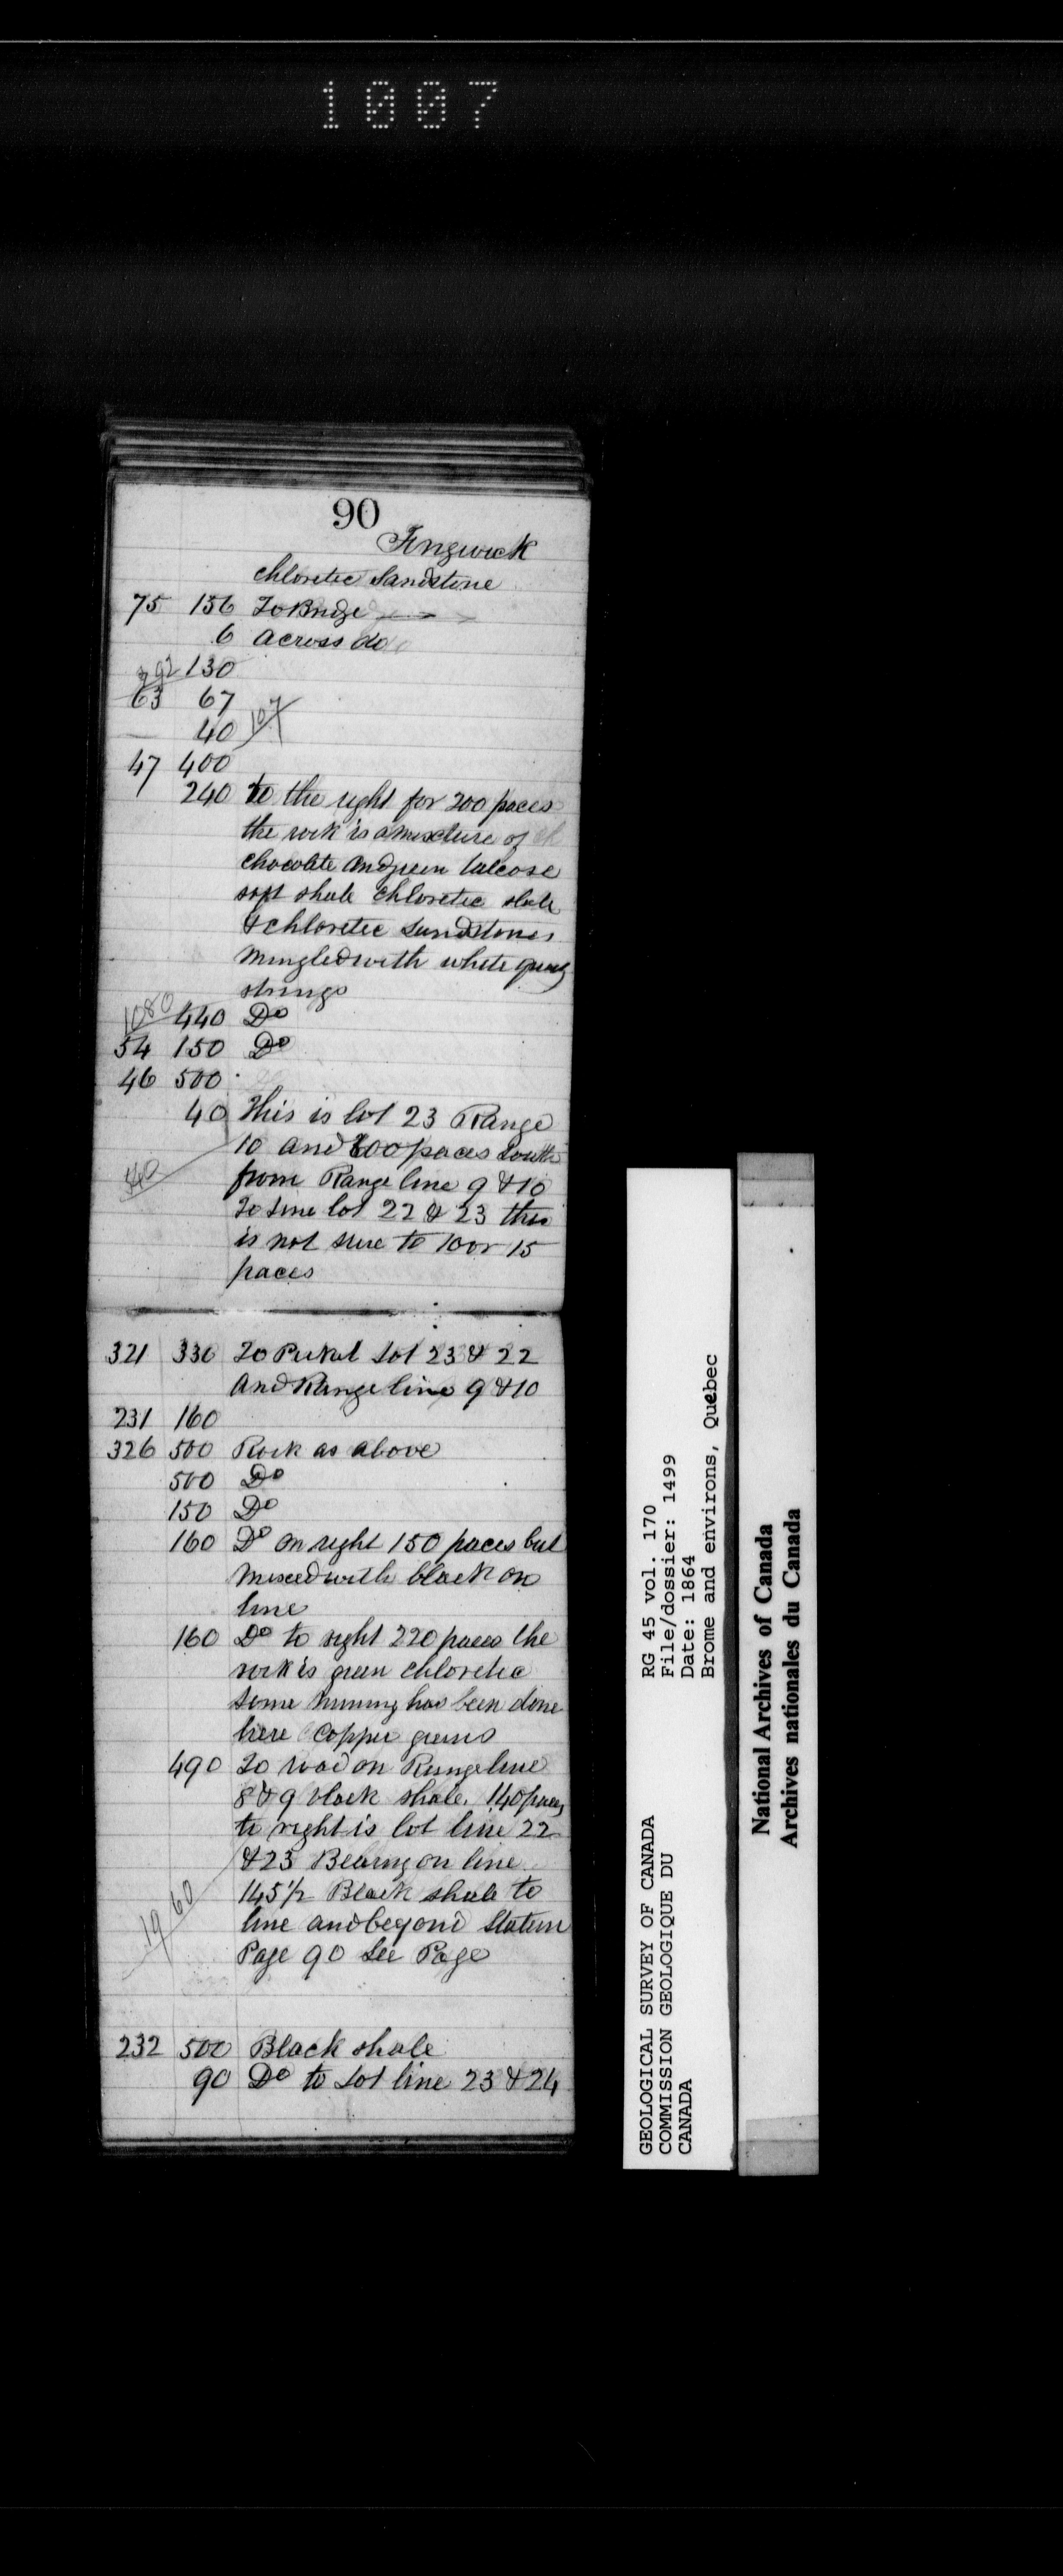 1007
90
Tingwick
chloretic Sandstone
75 156 To Bridge
6 across do
292 130
63 67
40 107
47 400
240 to the right for 200 paces
the rock is a mixture of
chocolate and green talcose
soft shale chloretic slate
& chloretic Sandstones
mingled with white quartz
strings
1080 440 Do
54 150 Do
46 500
40 This is lot 23 Range
10 and 600 paces South
40 from Range line 9 & 10
To line lot 22 & 23 this
is not sure to 10 or 15
paces
321 330 To Picket Lot 23 & 22
and Range line 9 & 10
231 160
326 500 Rock as above
500 Do
150 Do
160 Do on right 150 paces but
mixed with black on
line
160 Do to right 220 paces the
rock is green chloretic
some mining has been done
here Copper greens
490 To road on Range line
8 & 9 black shale. 140 paces
to right is lot line 22
& 23 Bearing on line
1960 145 1/2 Black shale to
line and beyond Station
Page 90 See Page
232 500 Black shale
90 Do to Lot line 23 & 24
GEOLOGICAL SURVEY OF CANADA RG 45 vol. 170
COMMISSION GEOLOGIQUE DU File/dossier: 1499
CANADA Date: 1864
Brome and environs, Québec
National Archives of Canada
Archives nationales du Canada